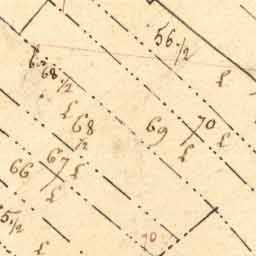 56 1/2
68 1/2
£
68 1/2
69
70
£
£
67
£
66
£
5 1/2
£
70